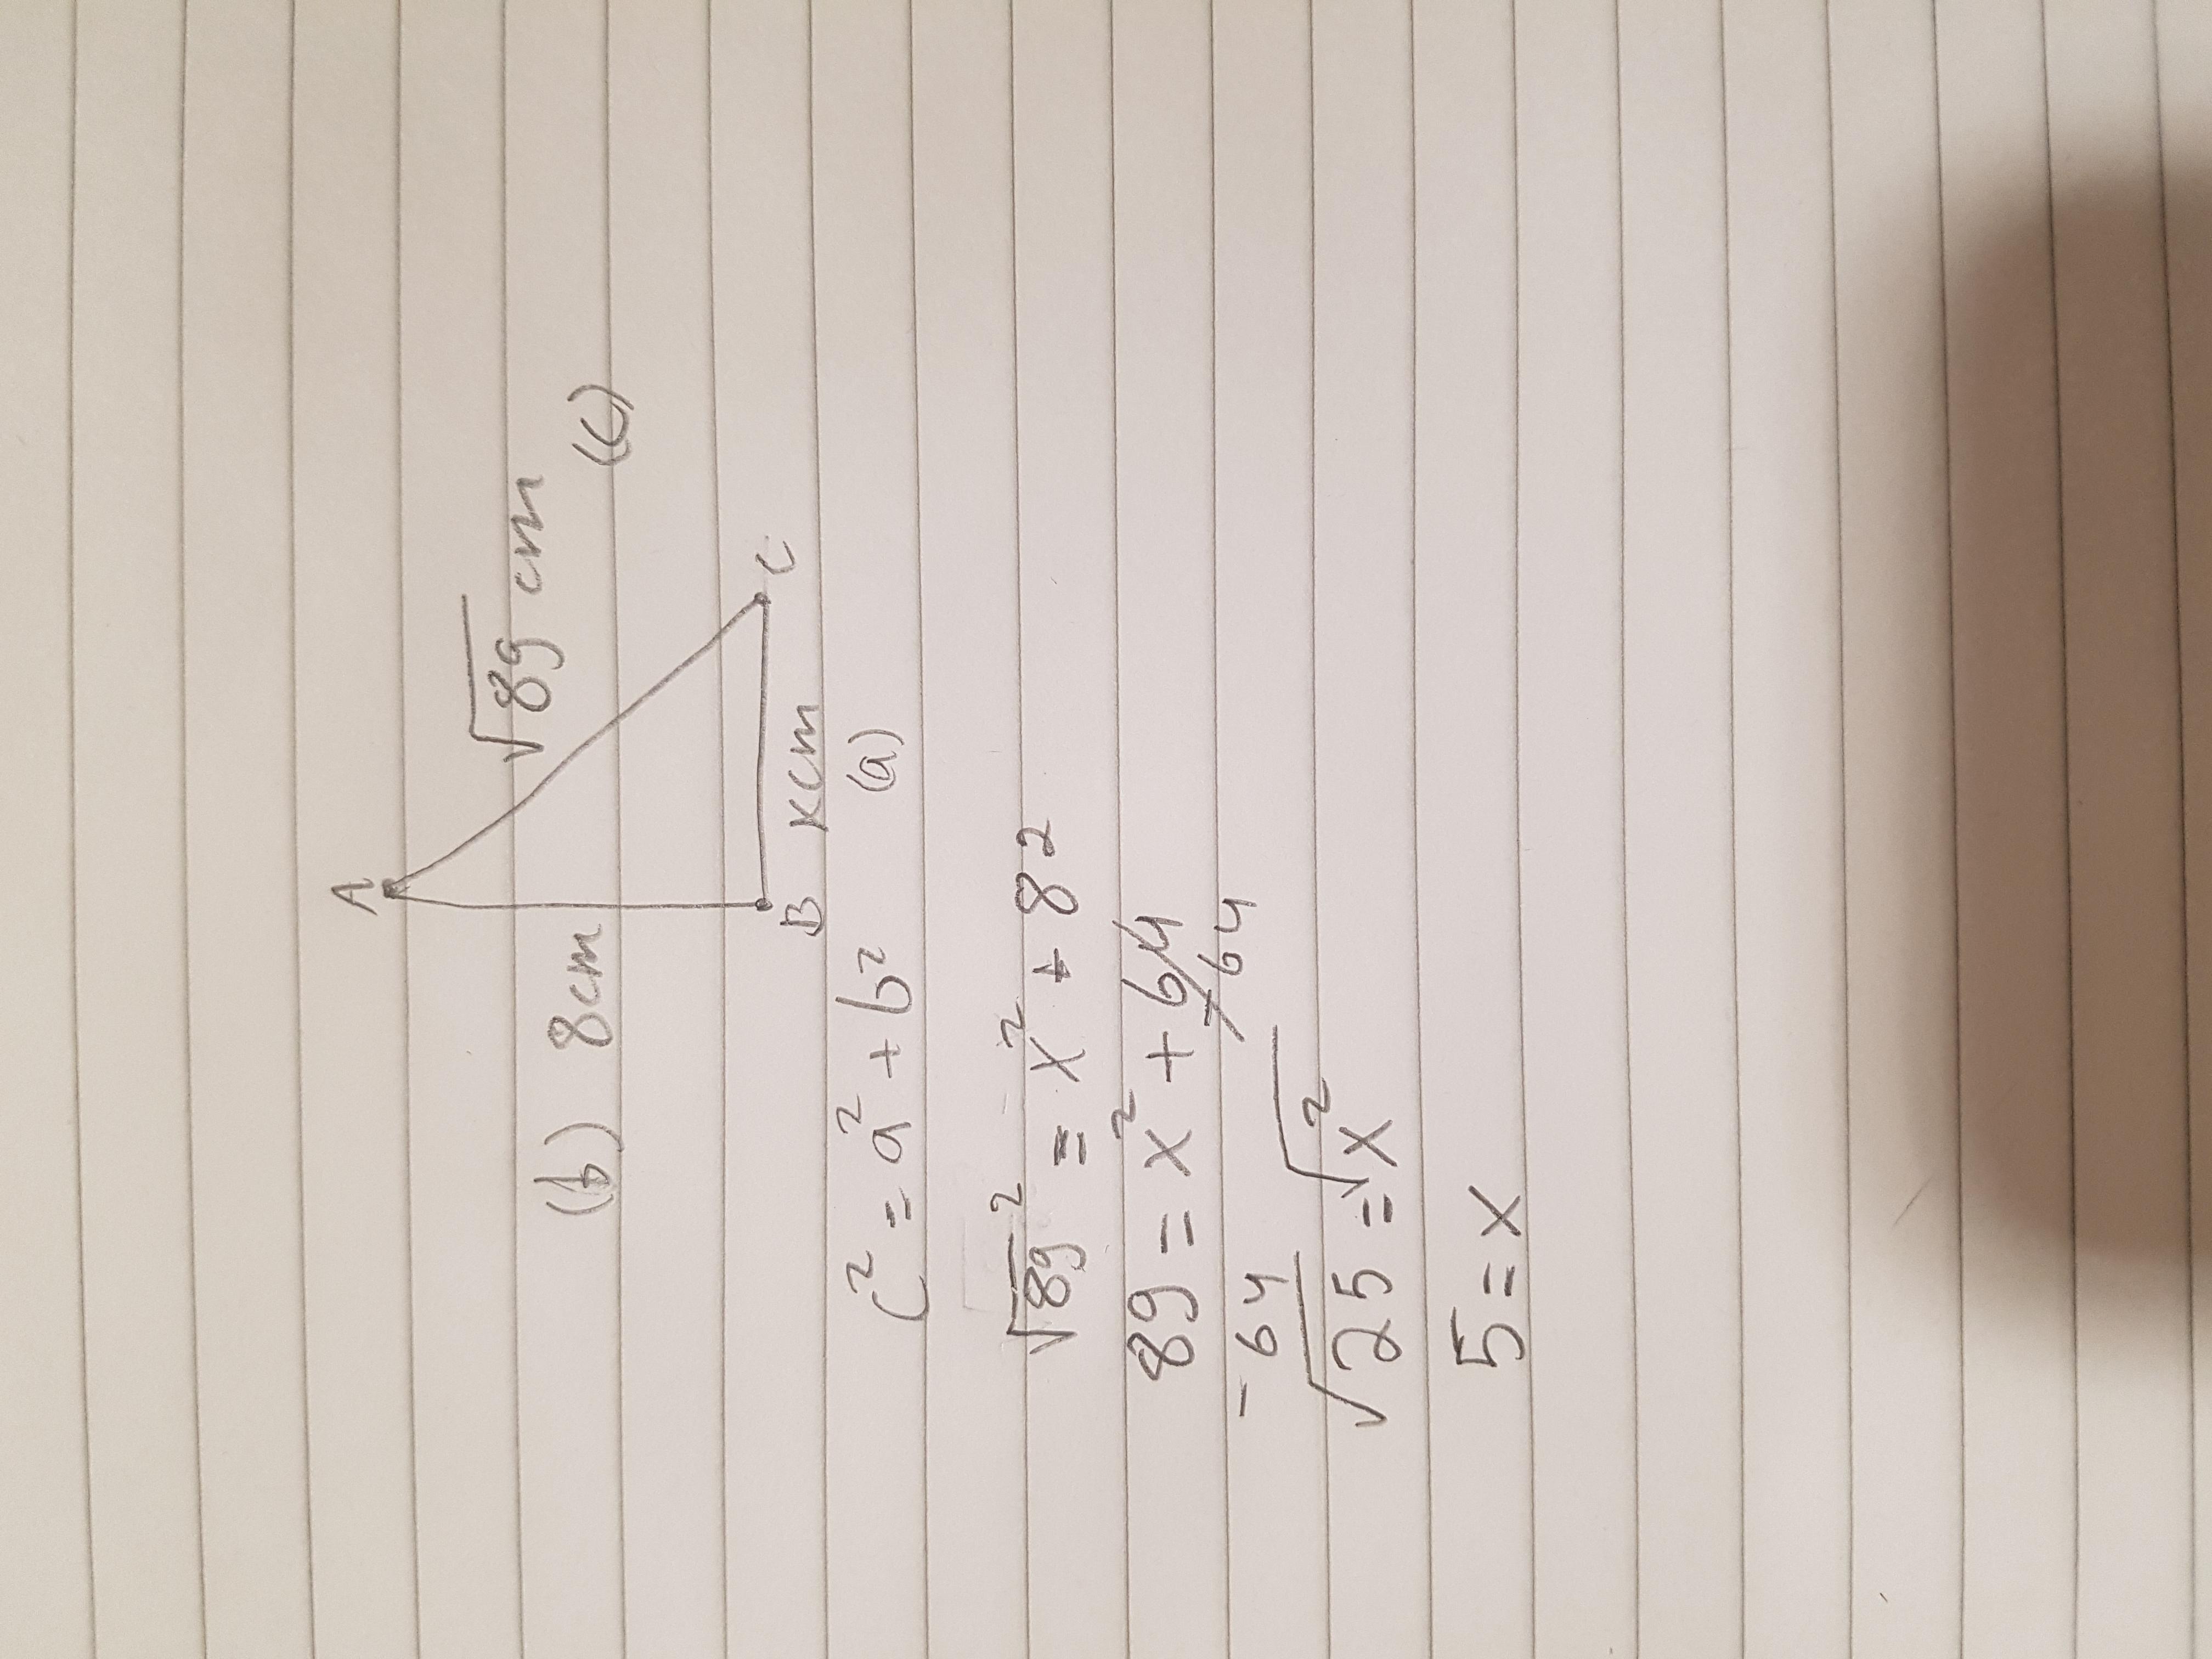 A
(b) 8cm √89 cm (c)
B xcm C
(a)
c² = a² + b²
√89² = x² + 8²
89 = x² + 64
-64 -64
√25 = √x²
5 = x